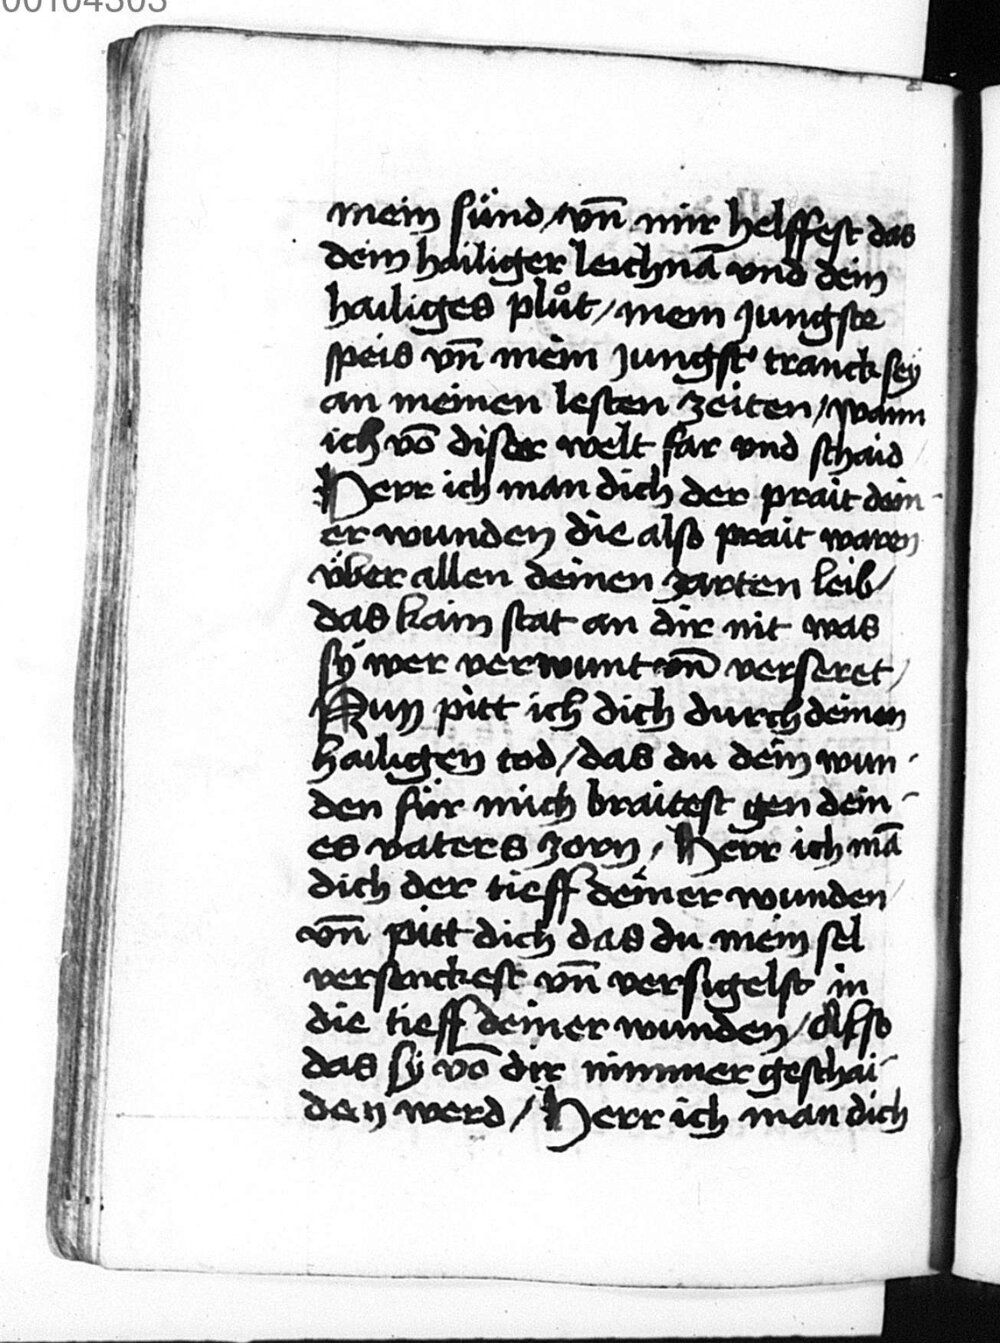 00104303
mein sünd / vn̄ mir helffest das
dein hailiger leichnā vnd dein
hailiges plůt / mein jungste
speis vn̄ mein jungst tranck sey
an meinen lesten zeiten / wann
ich vō diser welt far vnd schaid
Herr ich man dich der prait dein
er wunden die also prait waren
über allen deinen zarten leib /
das kain stat an dir nit was
sÿ wer verwunt vn̄ verseret /
Nun pitt ich dich durch deinen
hailigen tod / das du dein wun
den für mich braitest gen dein
es vaters zorn / Herr ich mā
dich der tieff deiner wunden
vn̄ pitt dich das du mein sel
versenckest vn̄ versigelst in
die tieff deiner wunden / Also
das sÿ vō dir nimmer geschai
den werd / Herr ich man dich